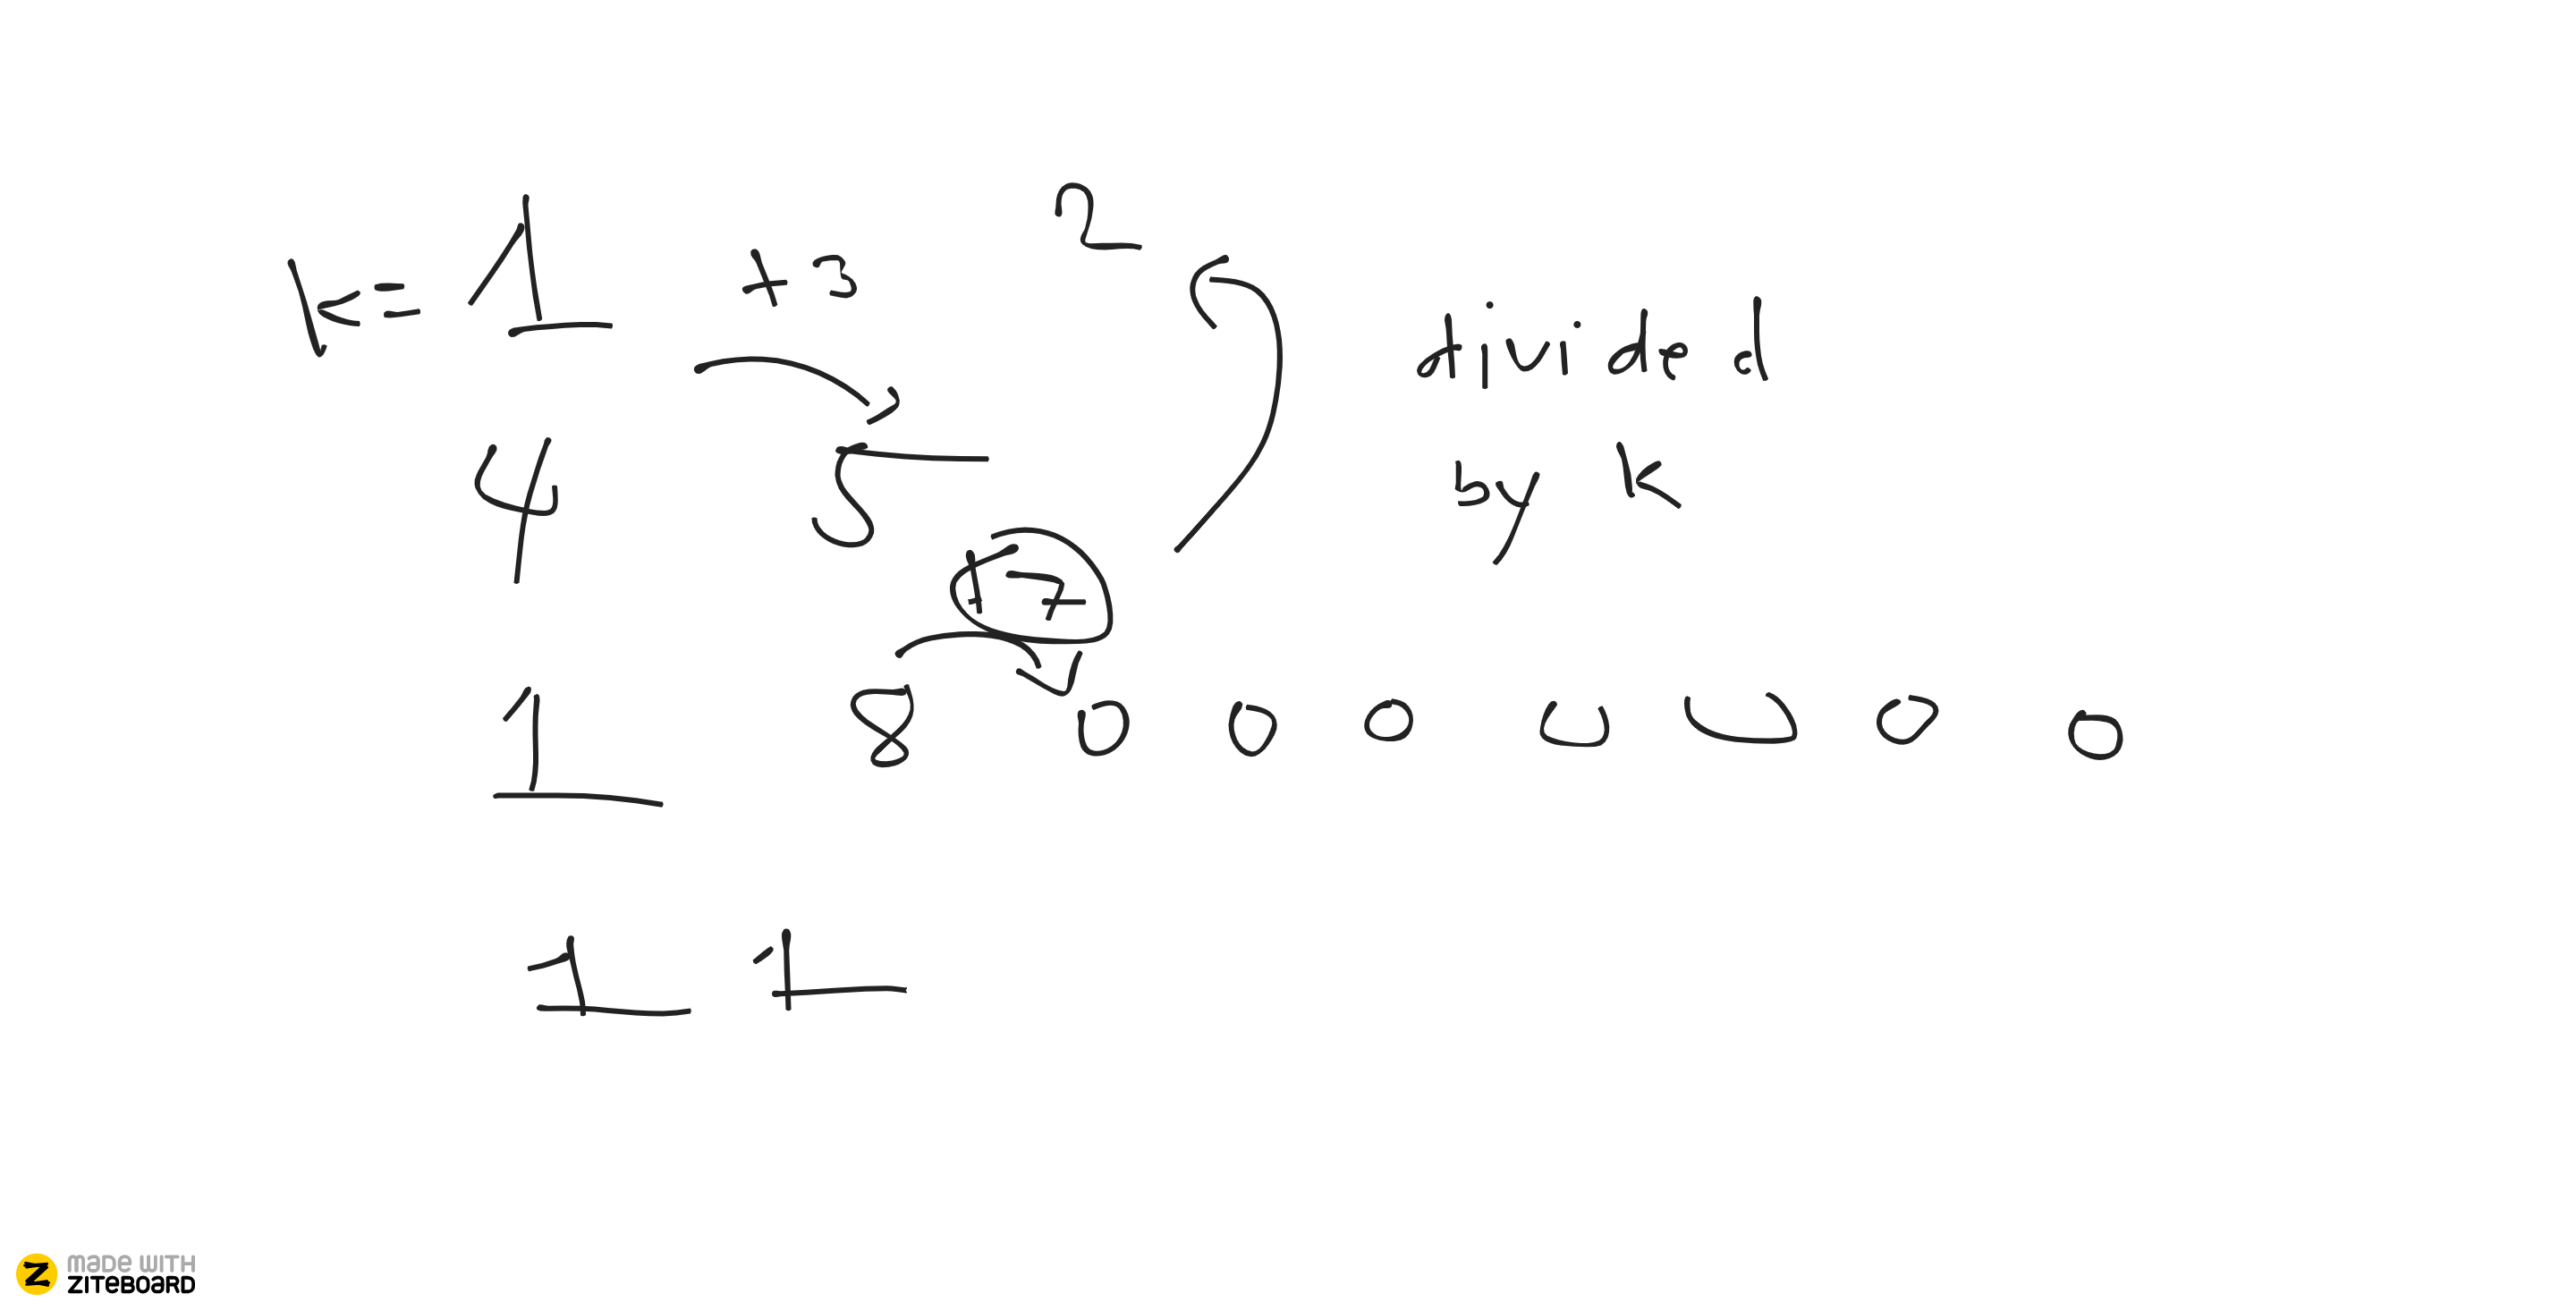 k= 1 +3 2
divided
4 5 by k
17
1 8 0 0 0 0 0 0 0
1 1
MADE WITH
ZITEBOARD